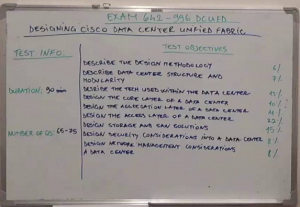 EXAM 642-996 DCUFD
DESIGNING CISCO DATA CENTER UNIFIED FABRIC
TEST INFO.
TEST OBJECTIVES
DESCRIBE THE DESIGN METHODOLOGY
DESCRIBE DATA CENTER STRUCTURE AND
MODULARITY 7%
DURATION: 90 min
DESCRIBE THE TECH USED WITHIN THE DATA CENTER
DESIGN THE CORE LAYER OF A DATA CENTER
DESIGN THE AGGREGATION LAYER OF A DATA CENTER
DESIGN THE ACCESS LAYER OF A DATA CENTER
DESIGN STORAGE AND SAN SOLUTIONS
NUMBER OF QS: 65-75
DESIGN SECURITY CONSIDERATIONS INTO A DATA CENTER 8%
DESIGN NETWORK MANAGEMENT CONSIDERATIONS
A DATA CENTER 8%